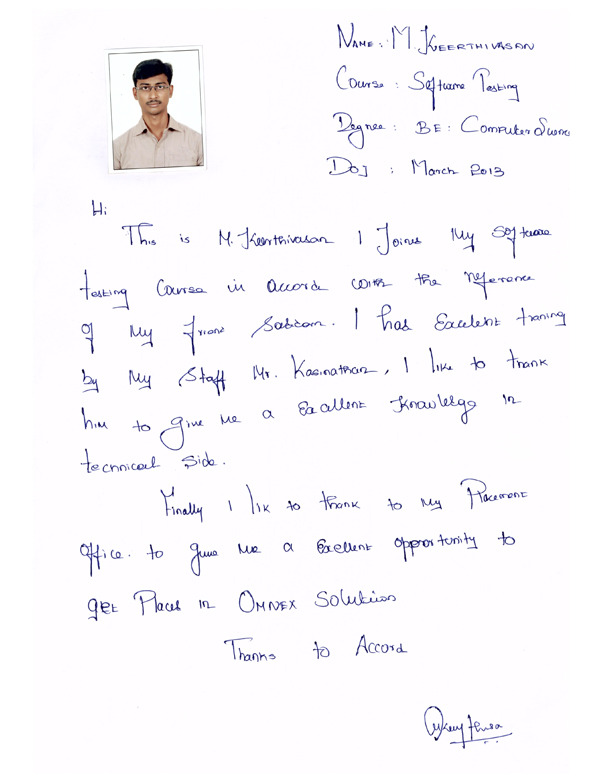 Name: M. Keerthivasan
Course: Software Testing
Degree: BE: Computer Science
Doj: March 2013
Hi
This is M. Keerthivasan I Joined My Software
testing Course in accord with the reference
of My friend Saddam. I had Excelent traning
by My Staff Mr. Kasinathan, I like to thank
him to give me a Excellent Knowledge in
technical side.
Finally I lik to thank to My Placement
Office. to give me a Excellent opportunity to
get Placed in OMNEX Solutions
Thanks to Accord